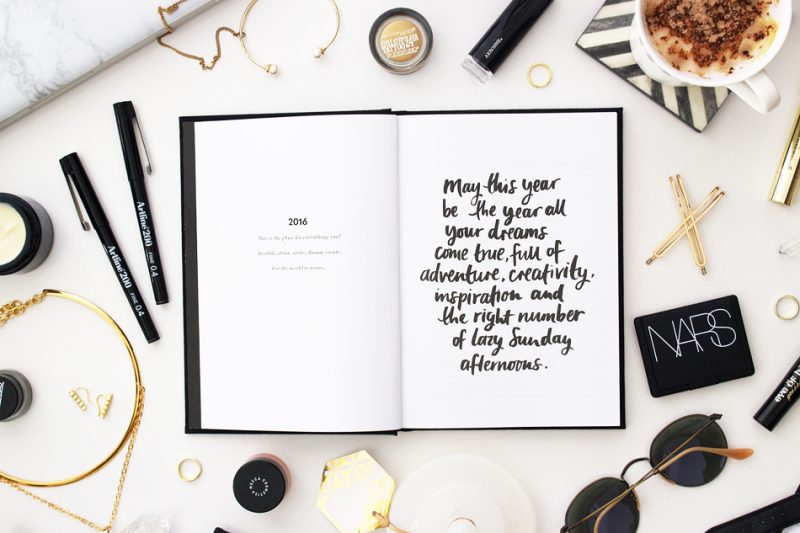 2016
This is the place for everything you!
Scribble, share, write, dream, create.
For the world is yours...
May this year
be the year all
your dreams
come true, full of
adventure, creativity,
inspiration and
the right number
of lazy Sunday
afternoons.
Artline 200 FINE 0.4
Artline 200 FINE 0.4
NARS
eye OF
MAYBELLINE
COLOR TATTOO
MECCA COSMETICA